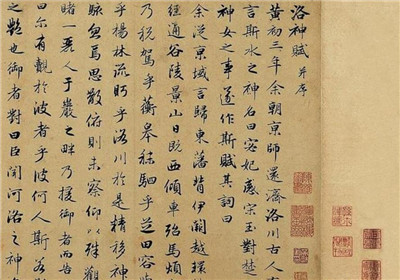 洛神賦 并序
黃初三年余朝京師還濟洛川古
言斯水之神名曰宓妃感宋玉對楚
神女之事遂作斯賦其詞曰
余從京域言歸東藩背伊闕越轘
經通谷陵景山日既西傾車殆馬煩
乃稅駕乎蘅皋秣駟乎芝田容與
乎楊林流眄乎洛川於是精移神
駭忽焉思散俯則未察仰以殊觀
睹一麗人于巖之畔乃援御者而告
曰尔有覿於彼者乎彼何人斯若
之艷也御者對曰臣聞河洛之神